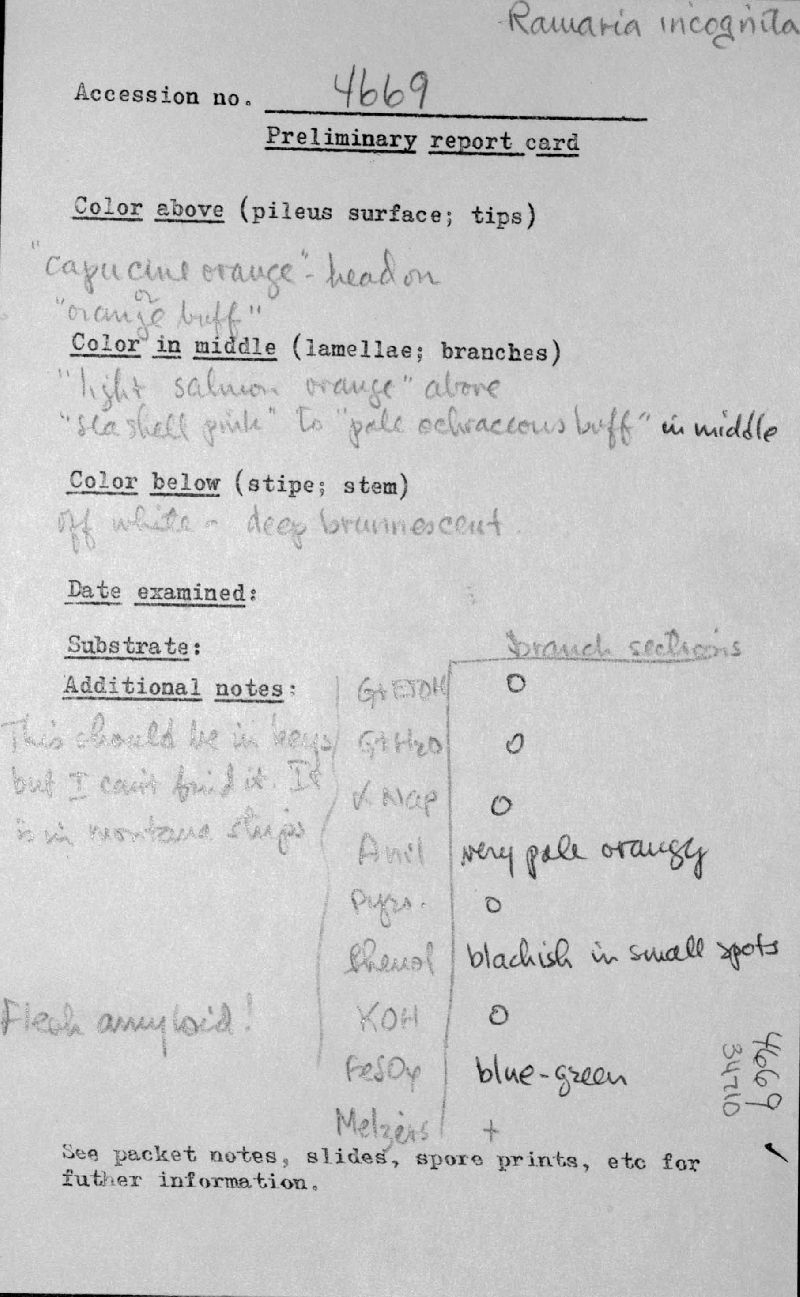 Ramaria incognita
Accession no. 4669
Preliminary report card
Color above (pileus surface; tips)
"capucine orange" - head on
or
"orange buff"
Color in middle (lamellae; branches)
"light salmon orange" above
"sea shell pink" to "pale ochraceous buff" in middle
Color below (stipe; stem)
off white - deep brunnescent
Date examined:
Substrate:
branch sections
Additional notes:
This should be in keys
but I can't find it. It
is in montana strips
Flesh amyloid!
G+EtOH O
G+H2O O
α Nap O
Anil very pale orangy
Pyro. O
Phenol blackish in small spots
KOH O
FeSO4 blue-green
Melzers +
4669
34710
See packet notes, slides, spore prints, etc for
futher information.